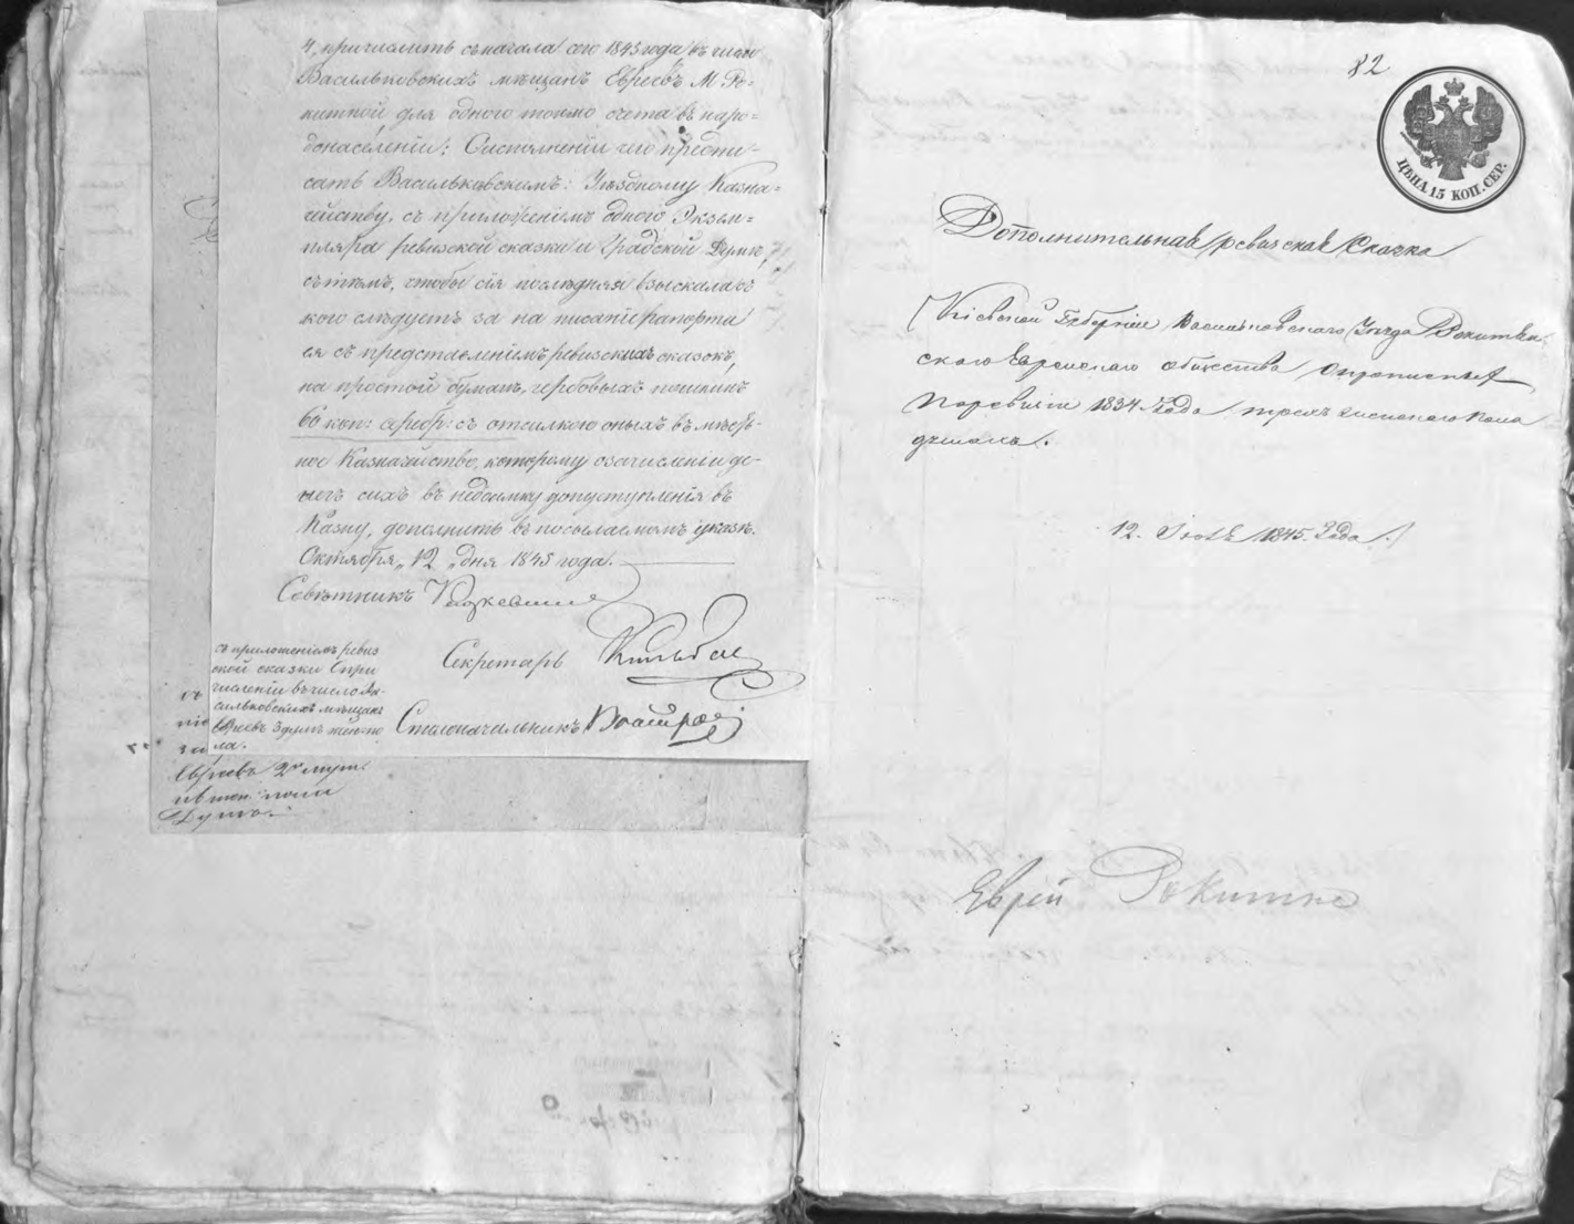 4, причислить съ начала сего 1845 года въ число
Васильковскихъ мѣщанъ Евреевъ М. Ро-
китной, для одного токмо счета въ наро-
донаселеніи; О исполненіи чего предпи-
сать Васильковскимъ: Уѣздному Казна-
чейству, съ приложеніемъ одного Экзем-
пляра ревизской сказки и Градской Думѣ,
съ тѣмъ, чтобы сія послѣдняя взыскала съ
кого слѣдуетъ за на писаніе рапорта
ея съ представленіемъ ревизскихъ сказокъ,
на простой бумагѣ, гербовыхъ пошлинъ
60 коп: сереб: съ отсылкою оныхъ въ мѣст-
ное Казначейство, которому о зачисленіи де-
негъ сихъ въ недоимку до поступленія въ
Казну, дополнить въ посылаемомъ указѣ.
Октября „12„ дня 1845 года.
Совѣтникъ
Секретарь
Столоначальникъ
съ приложеніемъ ревиз
ской сказки о при
численіи въ число Ва-
сильковскихъ мѣщанъ
Евреевъ 3 душъ жен: по
ла.
Евреевъ 2х муж:
пола
Душъ
82
ЦѢНА 15 КОП. СЕР.
Дополнительная ревизская Сказка
Кіевской Губерніи Васильковскаго Уѣзда Рокитян
скаго Еврейскаго общества о прописныхъ
по ревизіи 1834 Года трехъ женскаго пола
душахъ.
12. 1845. Года.
Еврей Рокитно